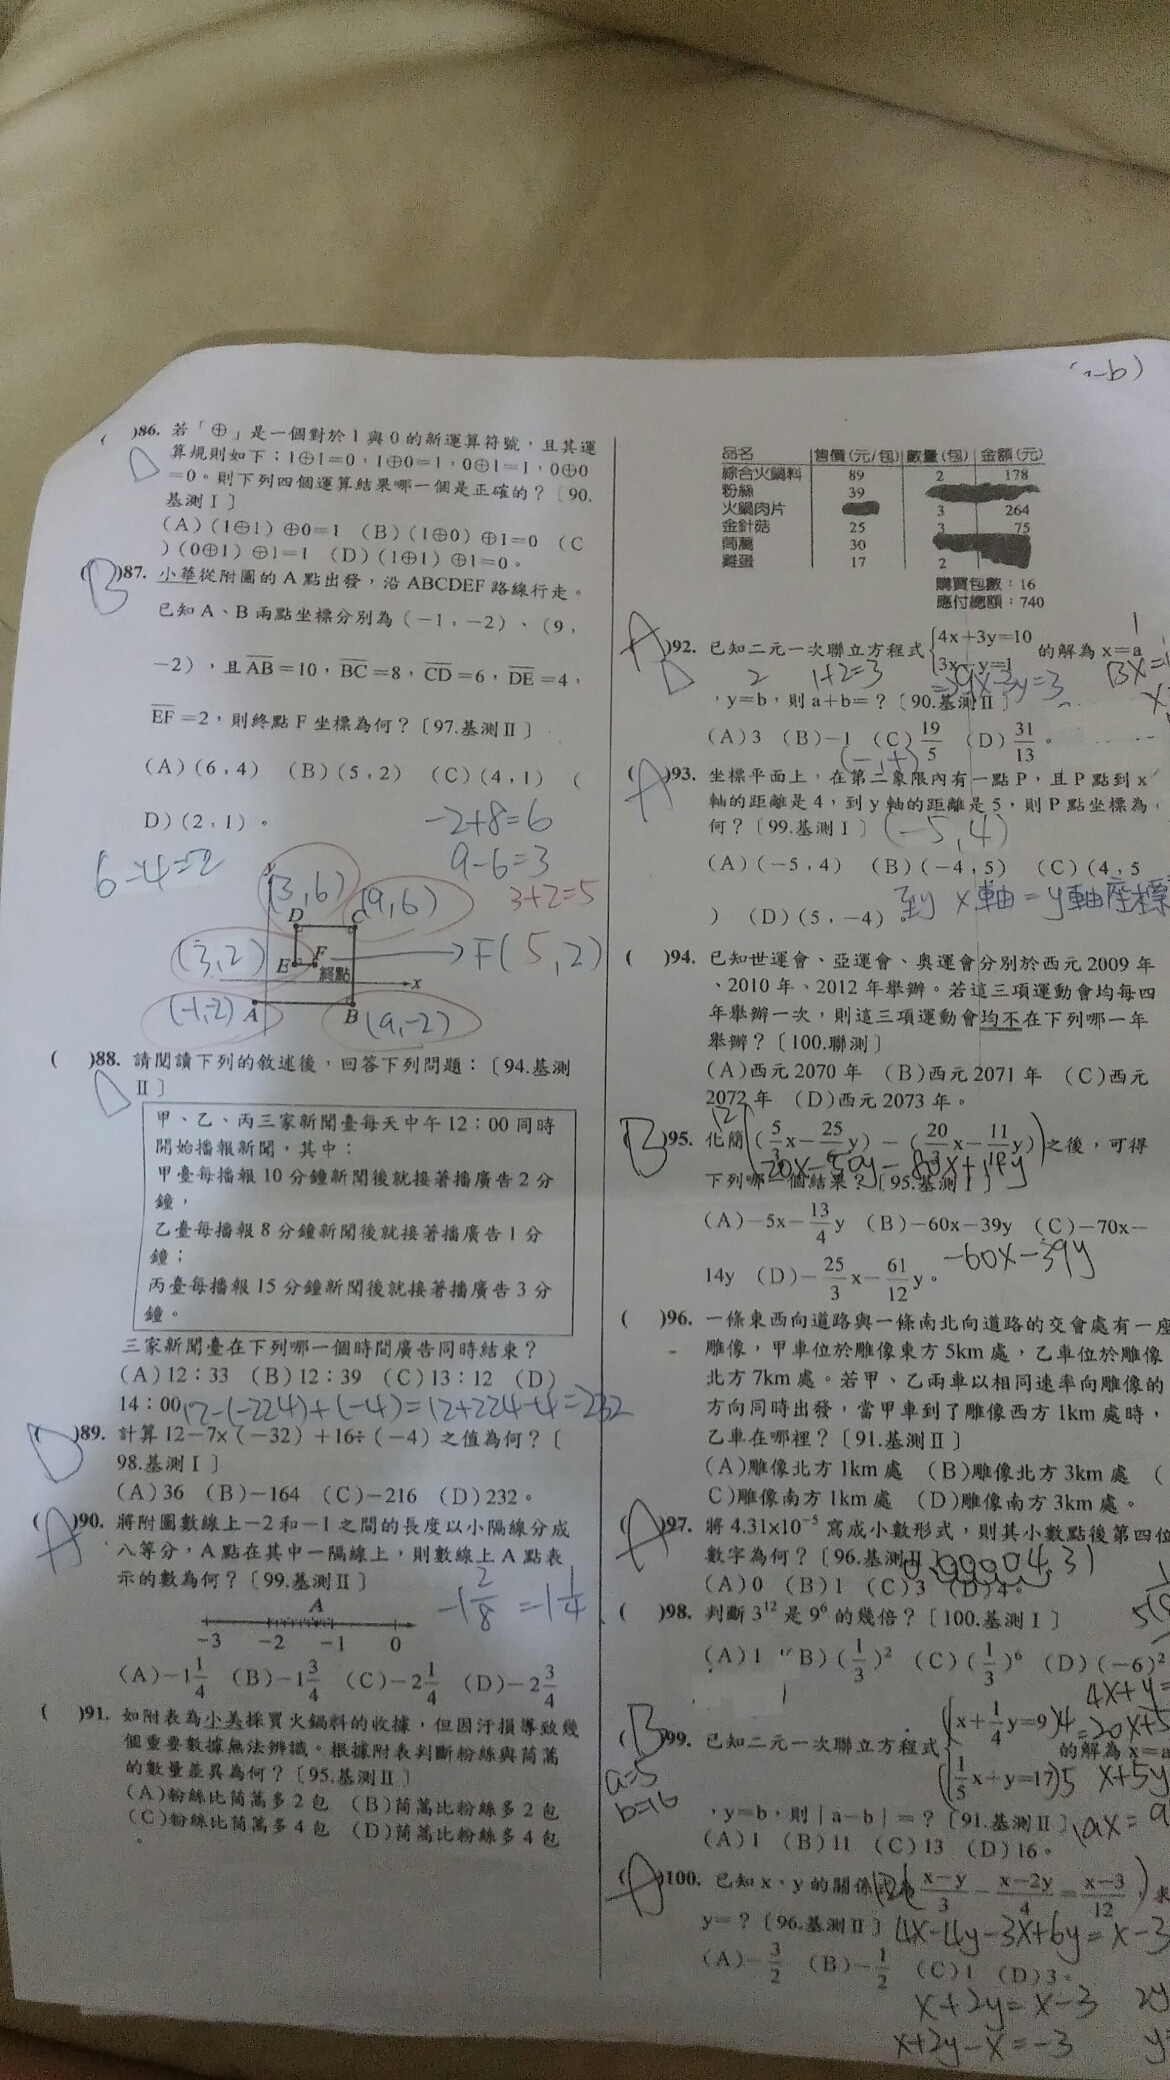 (a-b)
( )86. 若「⊕」是一個對於1與0的新運算符號，且其運
算規則如下：1⊕1=0，1⊕0=1，0⊕1=1，0⊕0
=0。則下列四個運算結果哪一個是正確的？〔90.
基測Ⅰ〕
(A)(1⊕1)⊕0=1 (B)(1⊕0)⊕1=0 (C
)(0⊕1)⊕1=1 (D)(1⊕1)⊕1=0。
B
( )87. 小華從附圖的A點出發，沿ABCDEF路線行走。
已知A、B兩點坐標分別為(-1，-2)、(9，
-2)，且AB=10，BC=8，CD=6，DE=4，
EF=2，則終點F坐標為何？〔97.基測Ⅱ〕
(A)(6，4) (B)(5，2) (C)(4，1) (
D)(2，1)。
-2+8=6
9-6=3
3+2=5
6-4=2
(3,6)
(9,6)
D C
(3,2)
E F
終點
F(5,2)
x
(-1,-2) A B (9,-2)
( )88. 請閱讀下列的敘述後，回答下列問題：〔94.基測
Ⅱ〕
D
甲、乙、丙三家新聞臺每天中午12：00同時
開始播報新聞，其中：
甲臺每播報10分鐘新聞後就接著播廣告2分
鐘，
乙臺每播報8分鐘新聞後就接著播廣告1分
鐘；
丙臺每播報15分鐘新聞後就接著播廣告3分
鐘。
三家新聞臺在下列哪一個時間廣告同時結束？
(A)12：33 (B)12：39 (C)13：12 (D)
14：00
12-(-224)+(-4)=12+224-4=232
D
( )89. 計算12-7×(-32)+16÷(-4)之值為何？〔
98.基測Ⅰ〕
(A)36 (B)-164 (C)-216 (D)232。
A
( )90. 將附圖數線上-2和-1之間的長度以小隔線分成
八等分，A點在其中一隔線上，則數線上A點表
示的數為何？〔99.基測Ⅱ〕
-1 2/8 = -1 1/4
A
-3 -2 -1 0
(A)-1 1/4 (B)-1 3/4 (C)-2 1/4 (D)-2 3/4
( )91. 如附表為小美採買火鍋料的收據，但因汙損導致幾
個重要數據無法辨識。根據附表判斷粉絲與茼蒿
的數量差異為何？〔95.基測Ⅱ〕
(A)粉絲比茼蒿多2包 (B)茼蒿比粉絲多2包
(C)粉絲比茼蒿多4包 (D)茼蒿比粉絲多4包
品名 售價(元/包) 數量(包) 金額(元)
綜合火鍋料 89 2 178
粉絲 39
火鍋肉片 3 264
金針菇 25 3 75
茼蒿 30
雞蛋 17 2
購買包數：16
應付總額：740
A
( )92. 已知二元一次聯立方程式{4x+3y=10 3x-y=1 的解為x=a
，y=b，則a+b=？〔90.基測Ⅱ〕
2 1+2=3 =9x-3y=3
(A)3 (B)-1 (C)19/5 (D)31/13。
(-,+)
A
( )93. 坐標平面上，在第二象限內有一點P，且P點到x
軸的距離是4，到y軸的距離是5，則P點坐標為
何？〔99.基測Ⅰ〕
(-5,4)
(A)(-5，4) (B)(-4，5) (C)(4，5
) (D)(5，-4)
到x軸=y軸座標
( )94. 已知世運會、亞運會、奧運會分別於西元2009年
、2010年、2012年舉辦。若這三項運動會均每四
年舉辦一次，則這三項運動會均不在下列哪一年
舉辦？〔100.聯測〕
(A)西元2070年 (B)西元2071年 (C)西元
2072年 (D)西元2073年。
B
12
( )95. 化簡(5/3x-25/6y)-(20/3x-11/12y)之後，可得
下列哪一個結果？〔95.基測Ⅰ〕
20x-50y-80x+11y
(A)-5x-13/4y (B)-60x-39y (C)-70x-
14y (D)-25/3x-61/12y。
-60x-39y
( )96. 一條東西向道路與一條南北向道路的交會處有一座
雕像，甲車位於雕像東方5km處，乙車位於雕像
北方7km處。若甲、乙兩車以相同速率向雕像的
方向同時出發，當甲車到了雕像西方1km處時，
乙車在哪裡？〔91.基測Ⅱ〕
(A)雕像北方1km處 (B)雕像北方3km處 (
C)雕像南方1km處 (D)雕像南方3km處。
A
( )97. 將4.31×10⁻⁵寫成小數形式，則其小數點後第四位
數字為何？〔96.基測Ⅱ〕
0.0000431
(A)0 (B)1 (C)3 (D)4。
( )98. 判斷3¹²是9⁶的幾倍？〔100.基測Ⅰ〕
(A)1 (B)(1/3)² (C)(1/3)⁶ (D)(-6)²
4x+y=
B
( )99. 已知二元一次聯立方程式{x+1/4y=9 1/5x+y=17 的解為x=a
)4 =20x+5
)5 x+5y
a=5
b=16
，y=b，則|a-b|=？〔91.基測Ⅱ〕
19x=9
(A)1 (B)11 (C)13 (D)16。
A
( )100. 已知x、y的關係式為(x-y)/3-(x-2y)/4=(x-3)/12，求
y=？〔96.基測Ⅱ〕
4x-4y-3x+6y=x-3
(A)-3/2 (B)-1/2 (C)1 (D)3。
x+2y=x-3
x+2y-x=-3